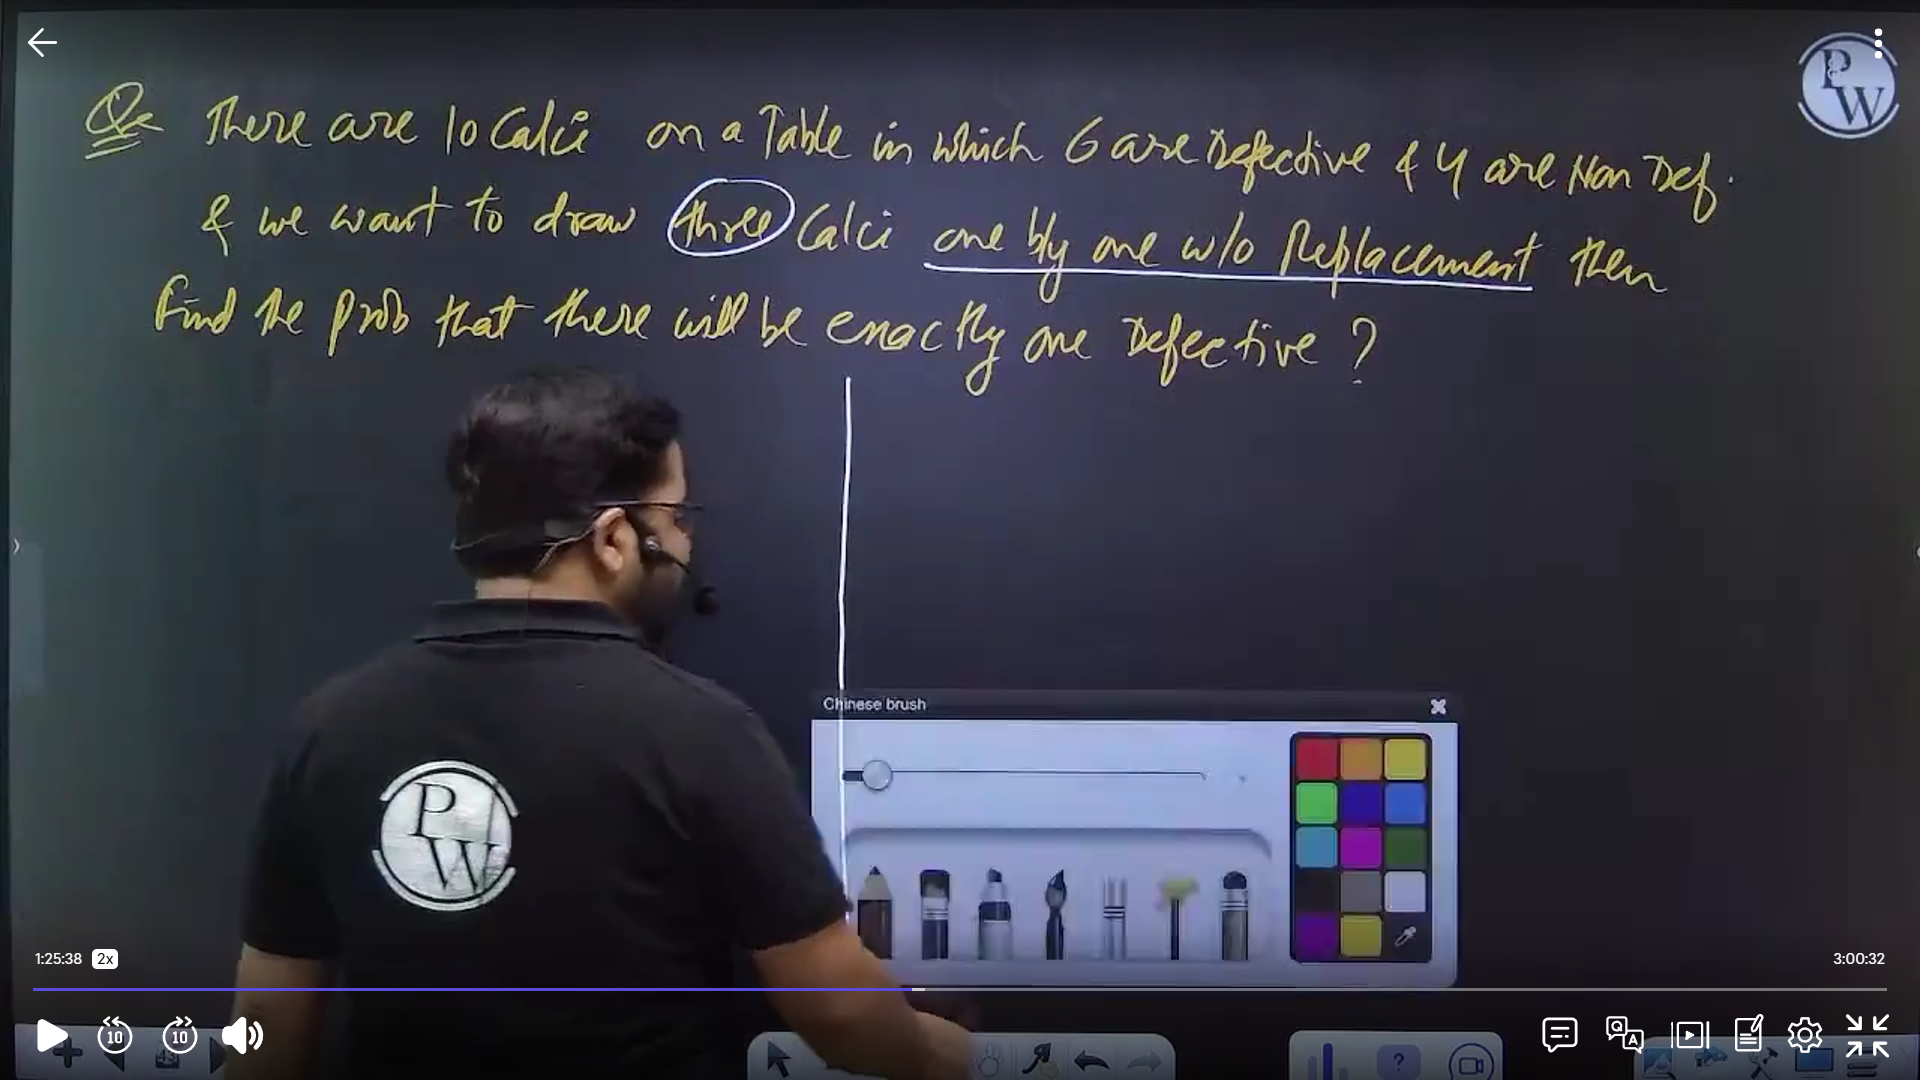 Q. There are 10 Calci on a Table in which 6 are Defective & 4 are Non Def.
& we want to draw three Calci one by one w/o Replacement then
Find the prob that there will be exactly one Defective ?
PW
Chinese brush
PW
1:25:38 2x 3:00:32
10 10